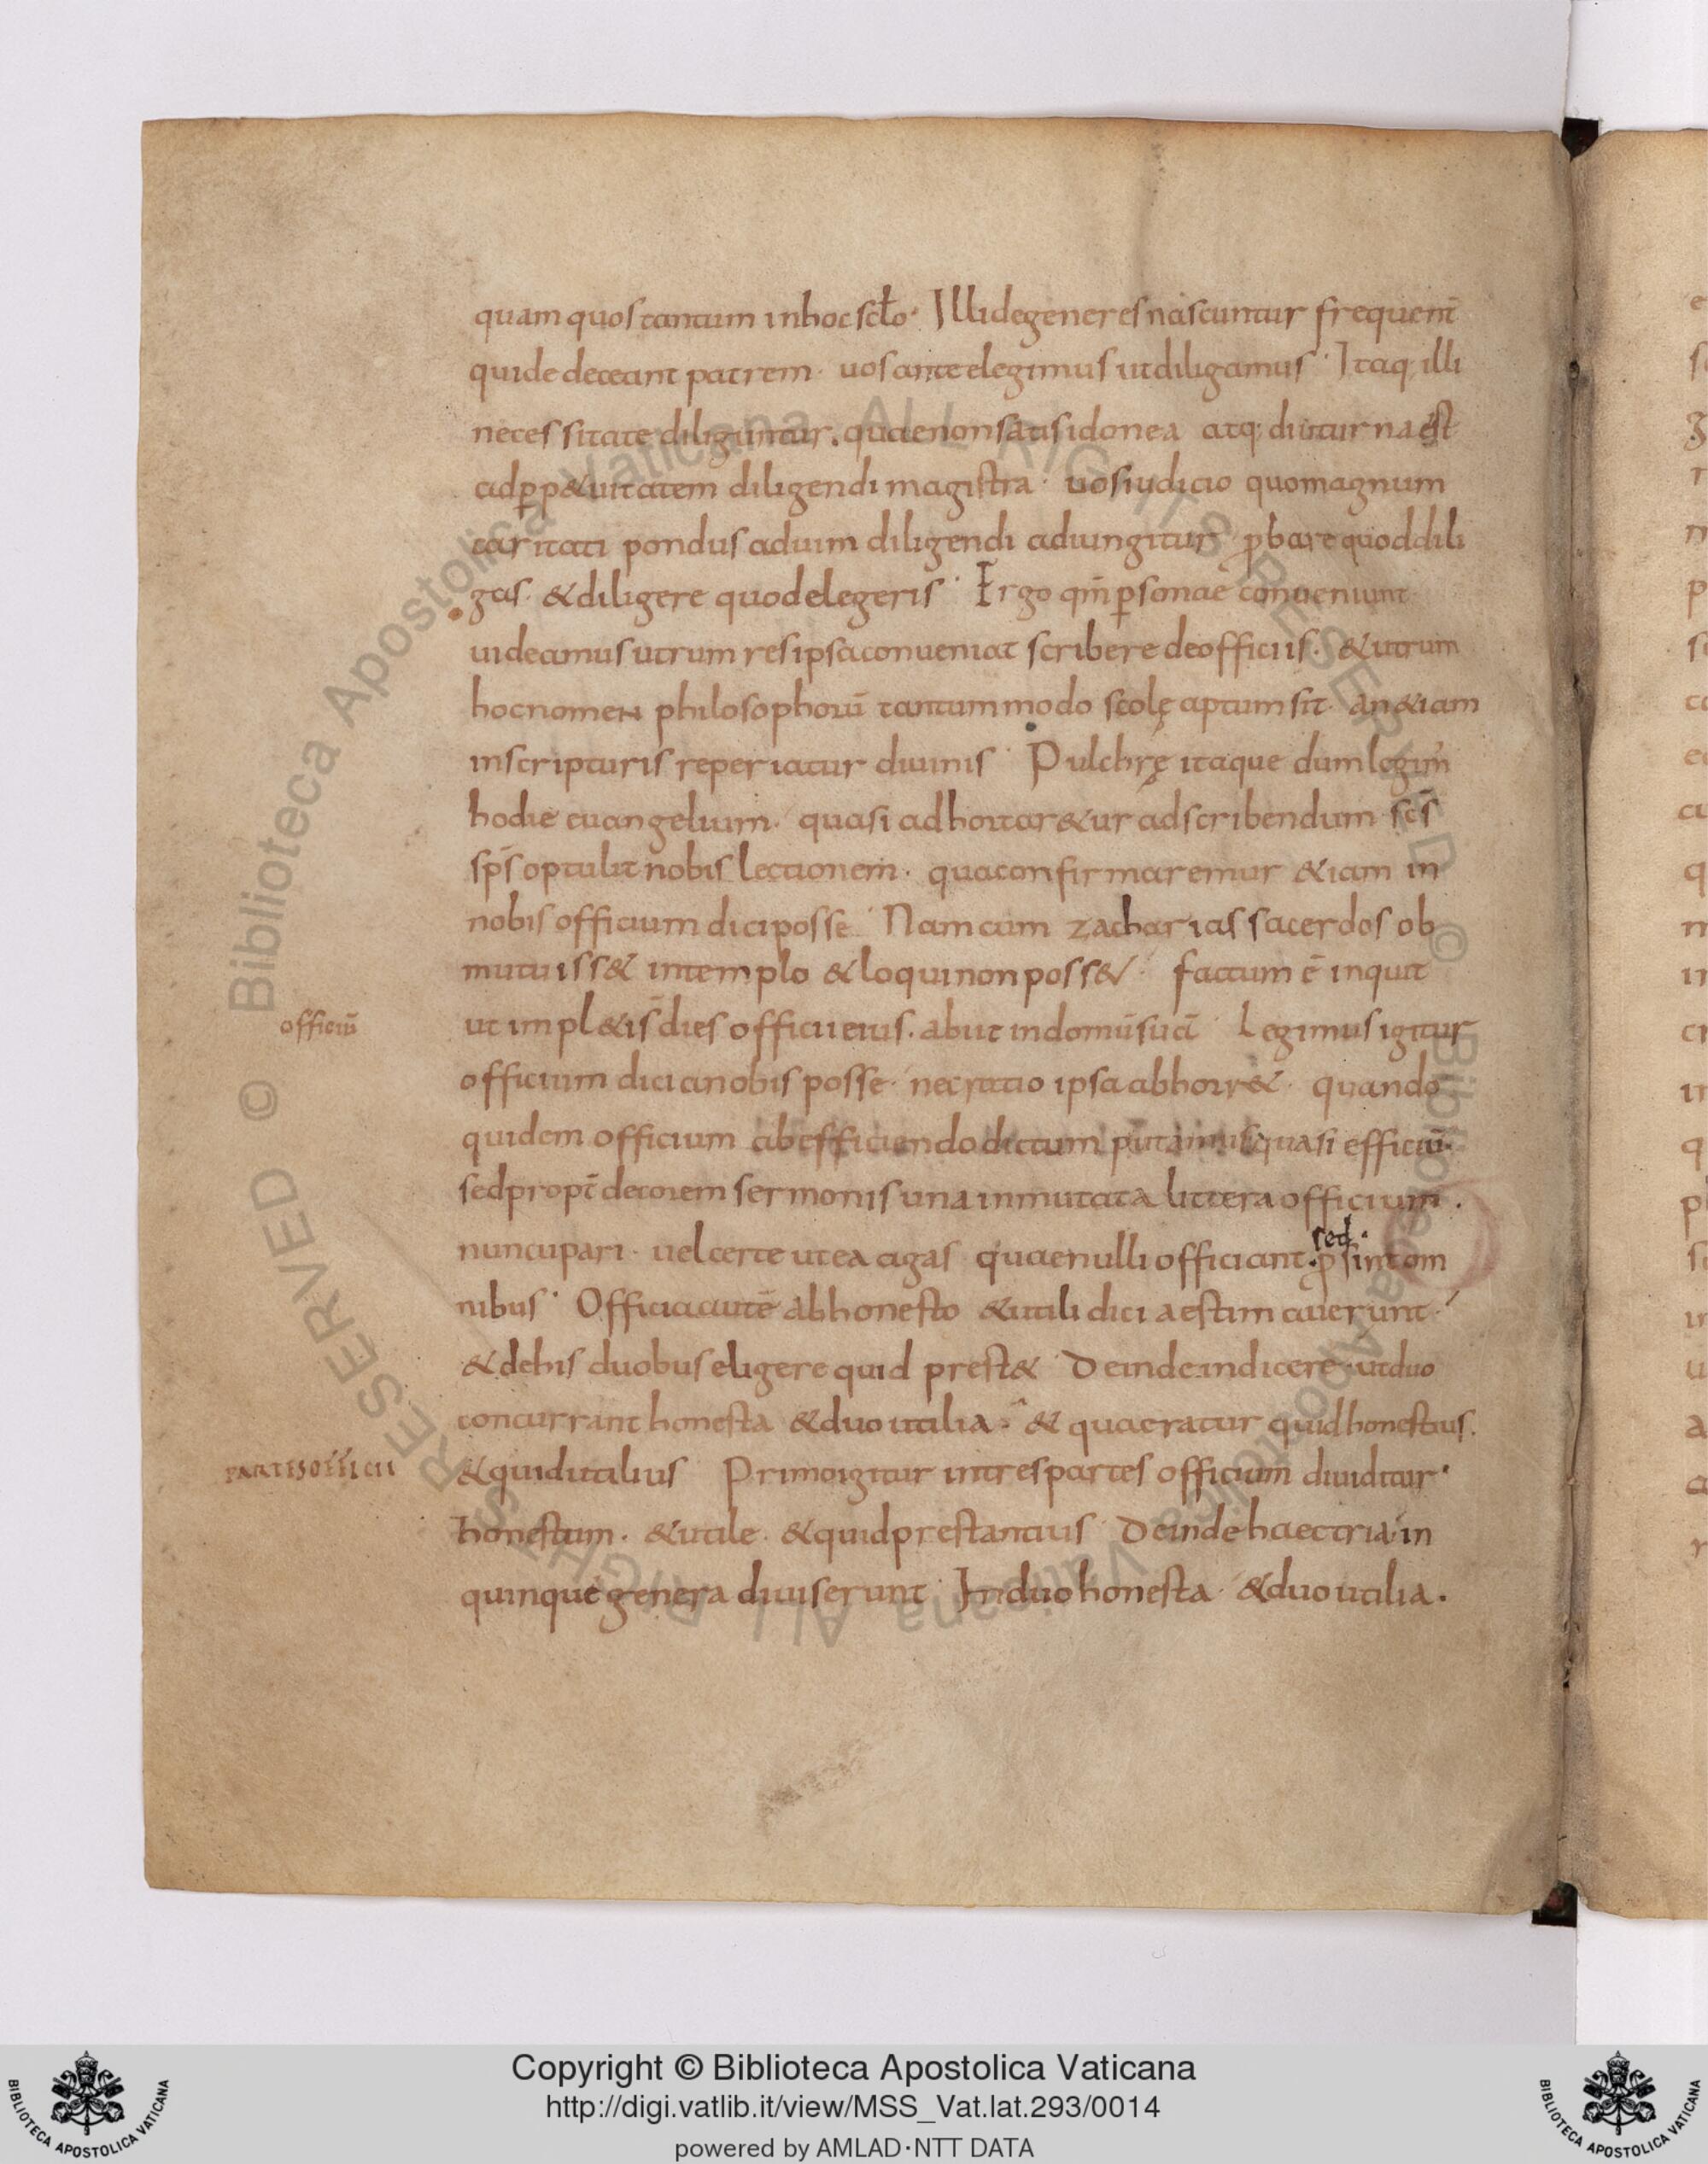 quam quos tantum in hoc scło· Illi degeneres nascuntur frequent̄
qui dedeceant patrem· uos ante elegimus ut diligamus· Itaq; illi
necessitate diliguntur. quae non satis idonea atq; diuturna est
ad ꝑp&uitatem diligendi magistra· uos iudicio quo magnum
caritati pondus ad uim diligendi adiungitur ꝓbare quod dili
gas· & diligere quod elegeris· Ergo qm̄ ꝑsonae conueniunt
uideamus utrum res ipsa conueniat scribere de officiis· & utrum
hoc nomen philosophorū tantummodo scolę aptum sit· an &iam
in scripturis reperiatur diuinis· Pulchrę itaque dum legim̄
hodie euangelium· quasi adhortar&ur ad scribendum scs̄
sps̄ optulit nobis lectionem· qua confirmaremur &iam in
nobis officium dici posse· Nam cum zacharias sacerdos ob
mutuiss& in templo & loqui non poss&· factum ē inquit
officiū
ut impl& is̄ dies officii eius. abiit in domū suā· Legimus igitur
officium dici a nobis posse· nec ratio ipsa abhorr&· quando
quidem officium ab efficiendo dictum putamus quasi efficiū·
sed propt̄ decorem sermonis una inmutata littera officium.
nuncupari· uel certe ut ea agas quae nulli officiant. sed· ꝓsint om
nibus· Officia autē ab honesto & utili dici aestimauerunt·
& de his duobus eligere quid prest&· Deinde indicere· ut duo
concurrant honesta & duo utilia· & quaeratur quid honestius.
PARTIS officii
& quid utilius Primo igitur in tres partes officium diuiditur·
honestum· & utile· & quid prestantius· Deinde haec tria in
quinque genera diuiserunt· In duo honesta· & duo utilia.
© Biblioteca Apostolica Vaticana ALL RIGHTS RESERVED © Biblioteca Apostolica Vaticana ALL RIGHTS RESERVED
Copyright © Biblioteca Apostolica Vaticana
http://digi.vatlib.it/view/MSS_Vat.lat.293/0014
powered by AMLAD·NTT DATA
BIBLIOTECA APOSTOLICA VATICANA
BIBLIOTECA APOSTOLICA VATICANA